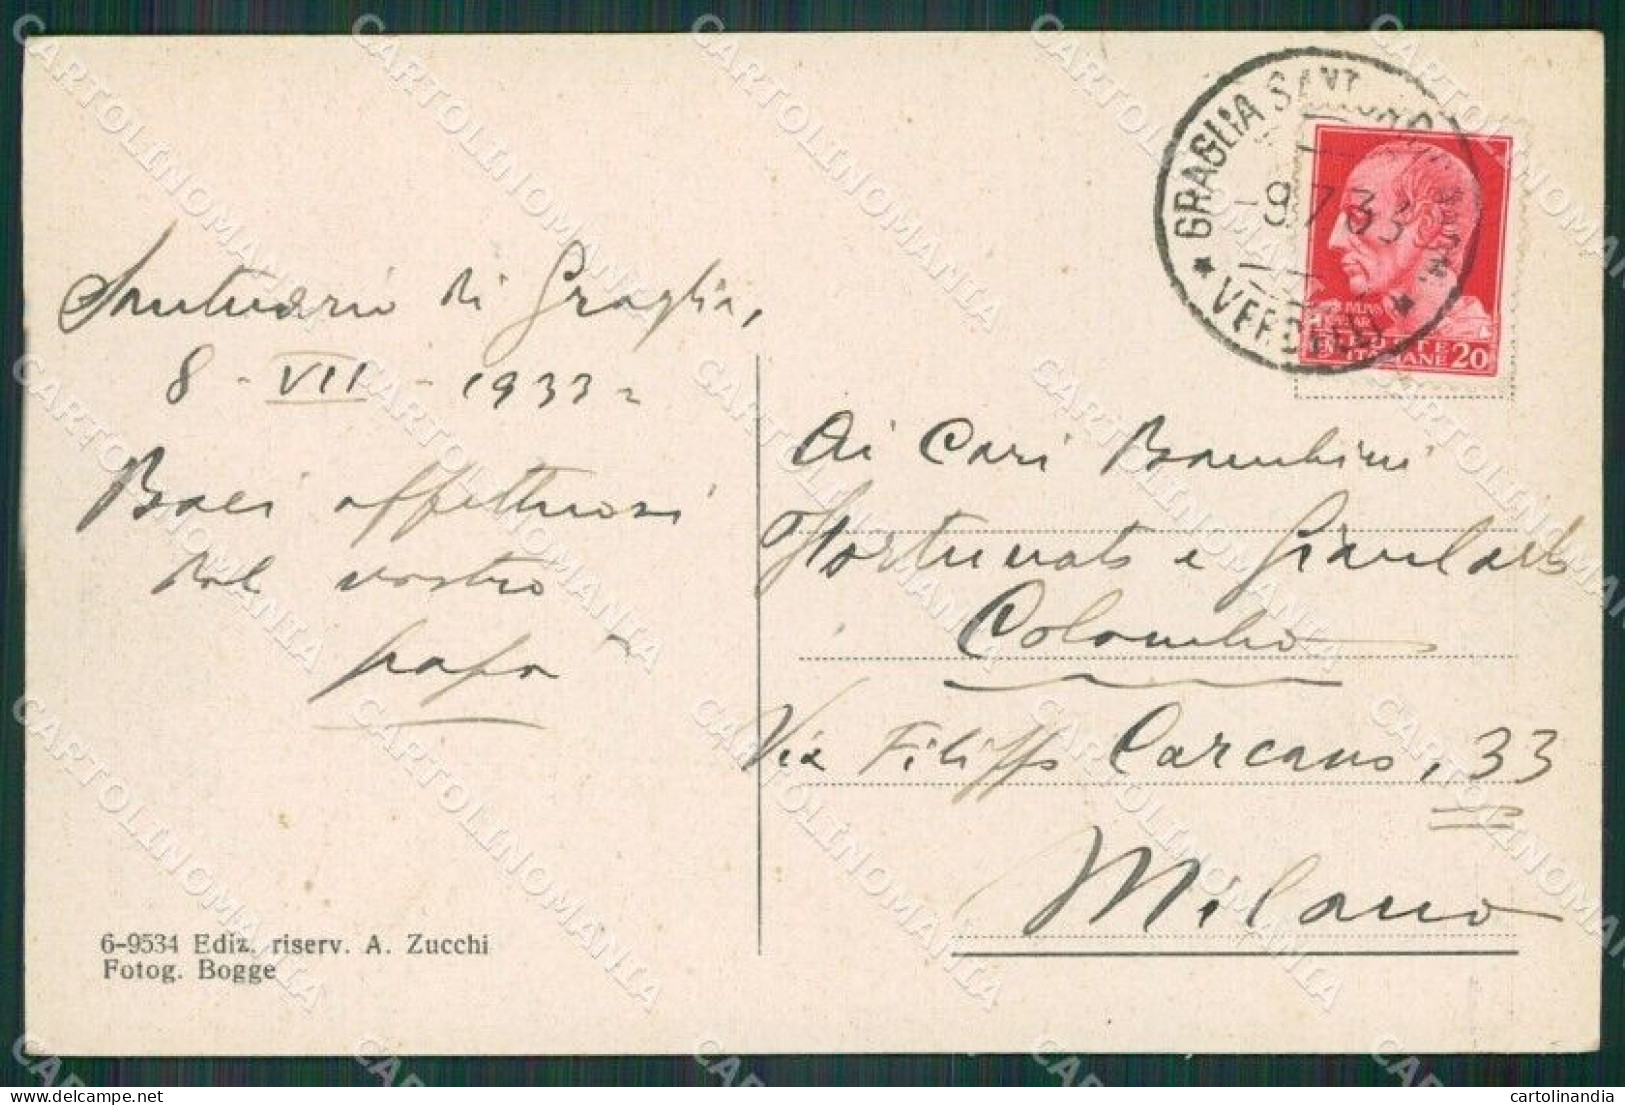 Santuario di Graglia,
8 - VII - 1933
Baci affettuosi
dal vostro
papà
6-9534 Ediz. riserv. A. Zucchi
Fotog. Bogge
GRAGLIA SANT
-9.7.33
VERCELLI
POSTE
ITALIANE 20
Ai Cari Bambini
Fortunato e Giancarlo
Colombo
Via Filippo Carcano, 33
Milano
CARTOLINOMANIA
cartolinandia